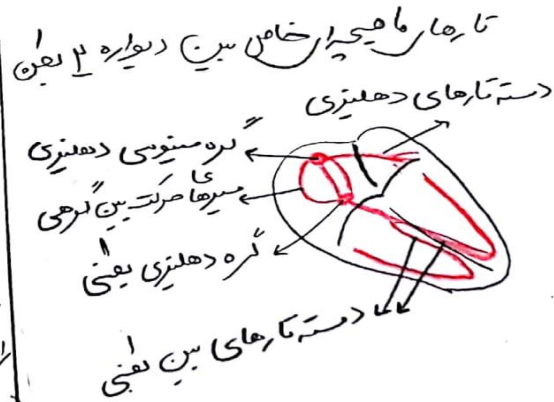 تارهای ماهیچه‌ای خاص بین دیواره ۲ بطن
دسته تارهای دهلیزی
گره سینوسی دهلیزی
مسیرهای حرکت بین گرهی
گره دهلیزی بطنی
دسته تارهای بین بطنی